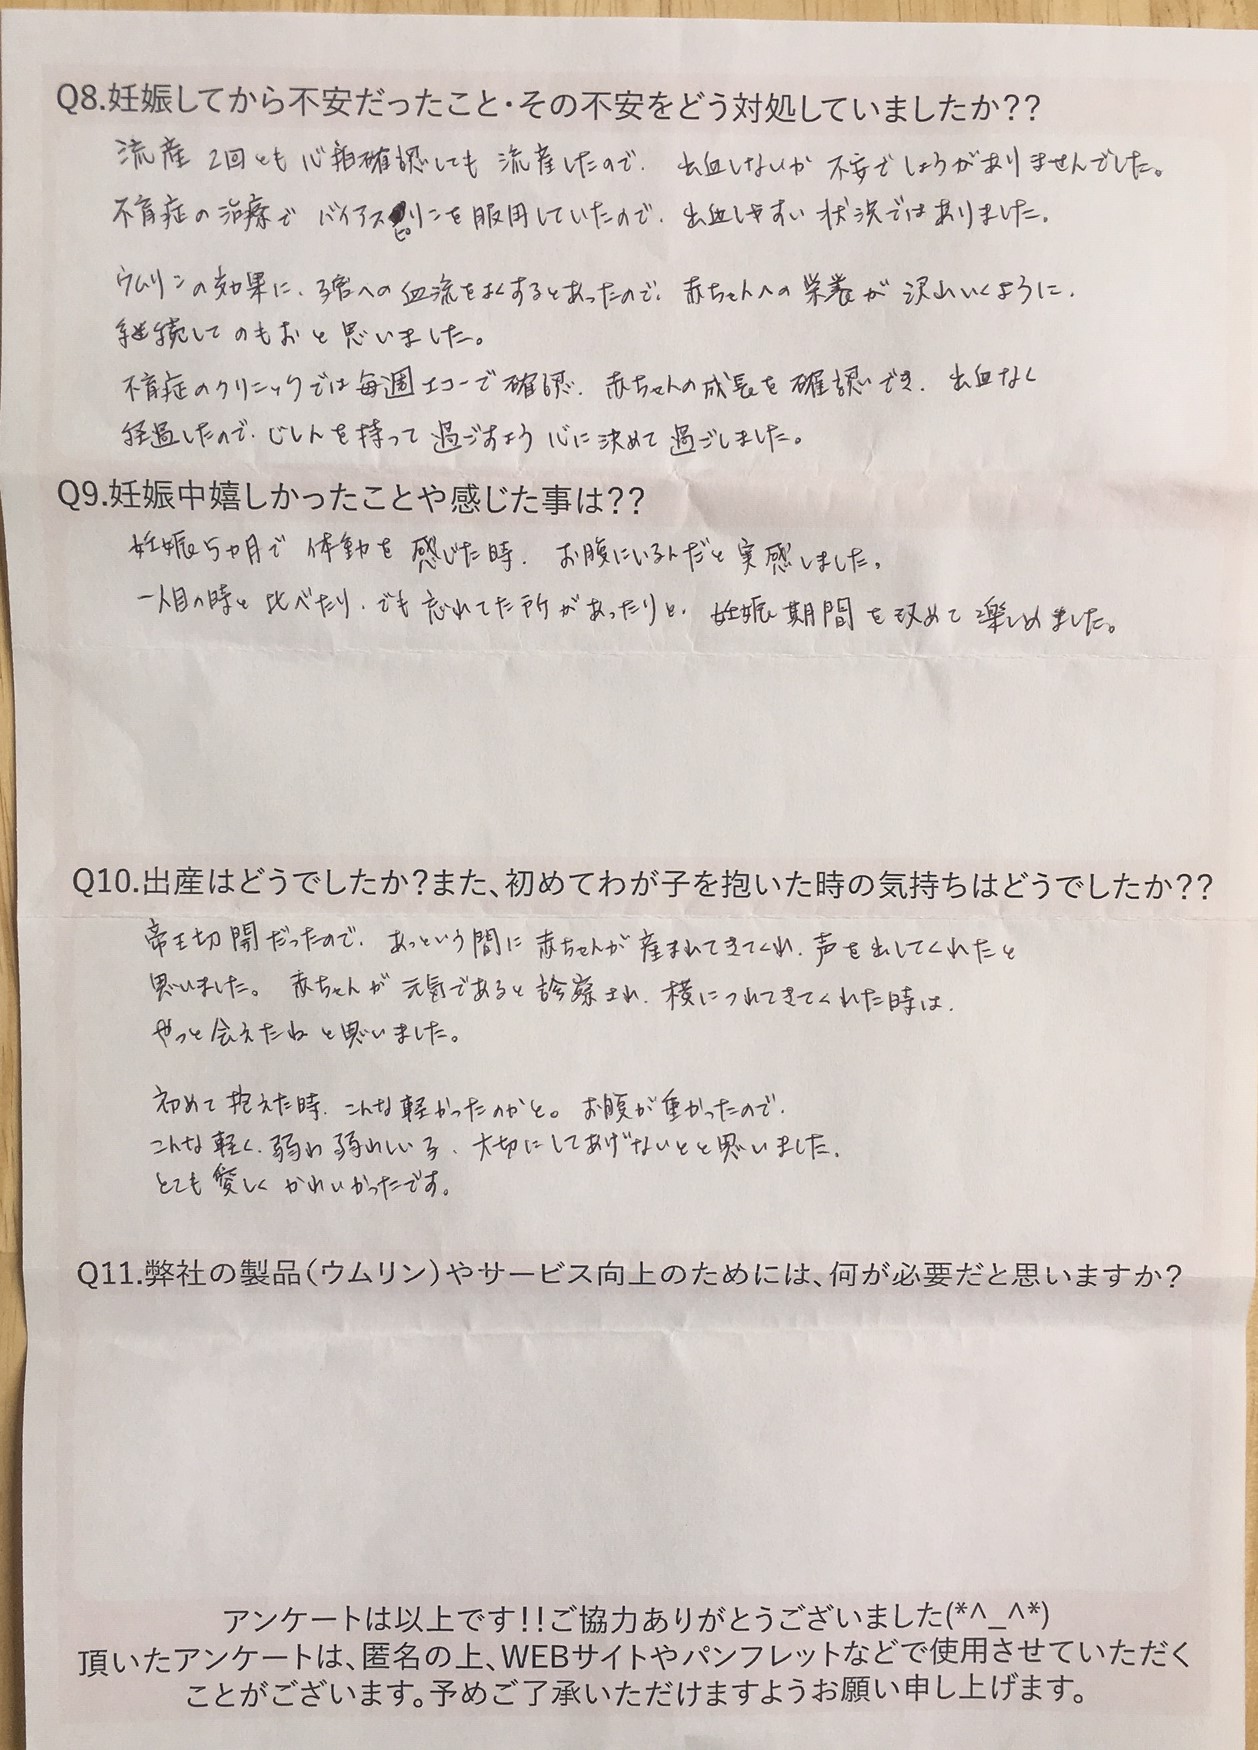 Q8.妊娠してから不安だったこと・その不安をどう対処していましたか??
流産 2回とも 心拍確認しても 流産したので、出血しないか 不安でしょうがありませんでした。
不育症の治療で バイアスピリンを服用していたので、出血しやすい 状況ではありました。
ウムリンの効果に、子宮への血流をよくするとあったので、赤ちゃんへの栄養が 沢山いくように、
継続してのもおと思いました。
不育症のクリニックでは毎週エコーで確認、赤ちゃんの成長を確認でき、出血なく
経過したので、じしんを持って過ごすよう心に決めて過ごしました。
Q9.妊娠中嬉しかったことや感じた事は??
妊娠5ヵ月で 体動を 感じた時、お腹にいるんだと実感しました。
一人目の時と 比べたり、でも忘れてた所があったりと、妊娠期間を改めて楽しめました。
Q10.出産はどうでしたか?また、初めてわが子を抱いた時の気持ちはどうでしたか??
帝王切開だったので、あっという間に赤ちゃんが産まれてきてくれ、声を出してくれたと
思いました。赤ちゃんが 元気であると診察され、横につれてきてくれた時は、
やっと会えたねと思いました。
初めて抱えた時、こんな軽かったのかと。お腹が重かったので、
こんな軽く、弱わ弱わしい子、大切にしてあげないとと思いました。
とても愛しくかわいかったです。
Q11.弊社の製品(ウムリン)やサービス向上のためには、何が必要だと思いますか?
アンケートは以上です!!ご協力ありがとうございました(*^_^*)
頂いたアンケートは、匿名の上、WEBサイトやパンフレットなどで使用させていただく
ことがございます。予めご了承いただけますようお願い申し上げます。